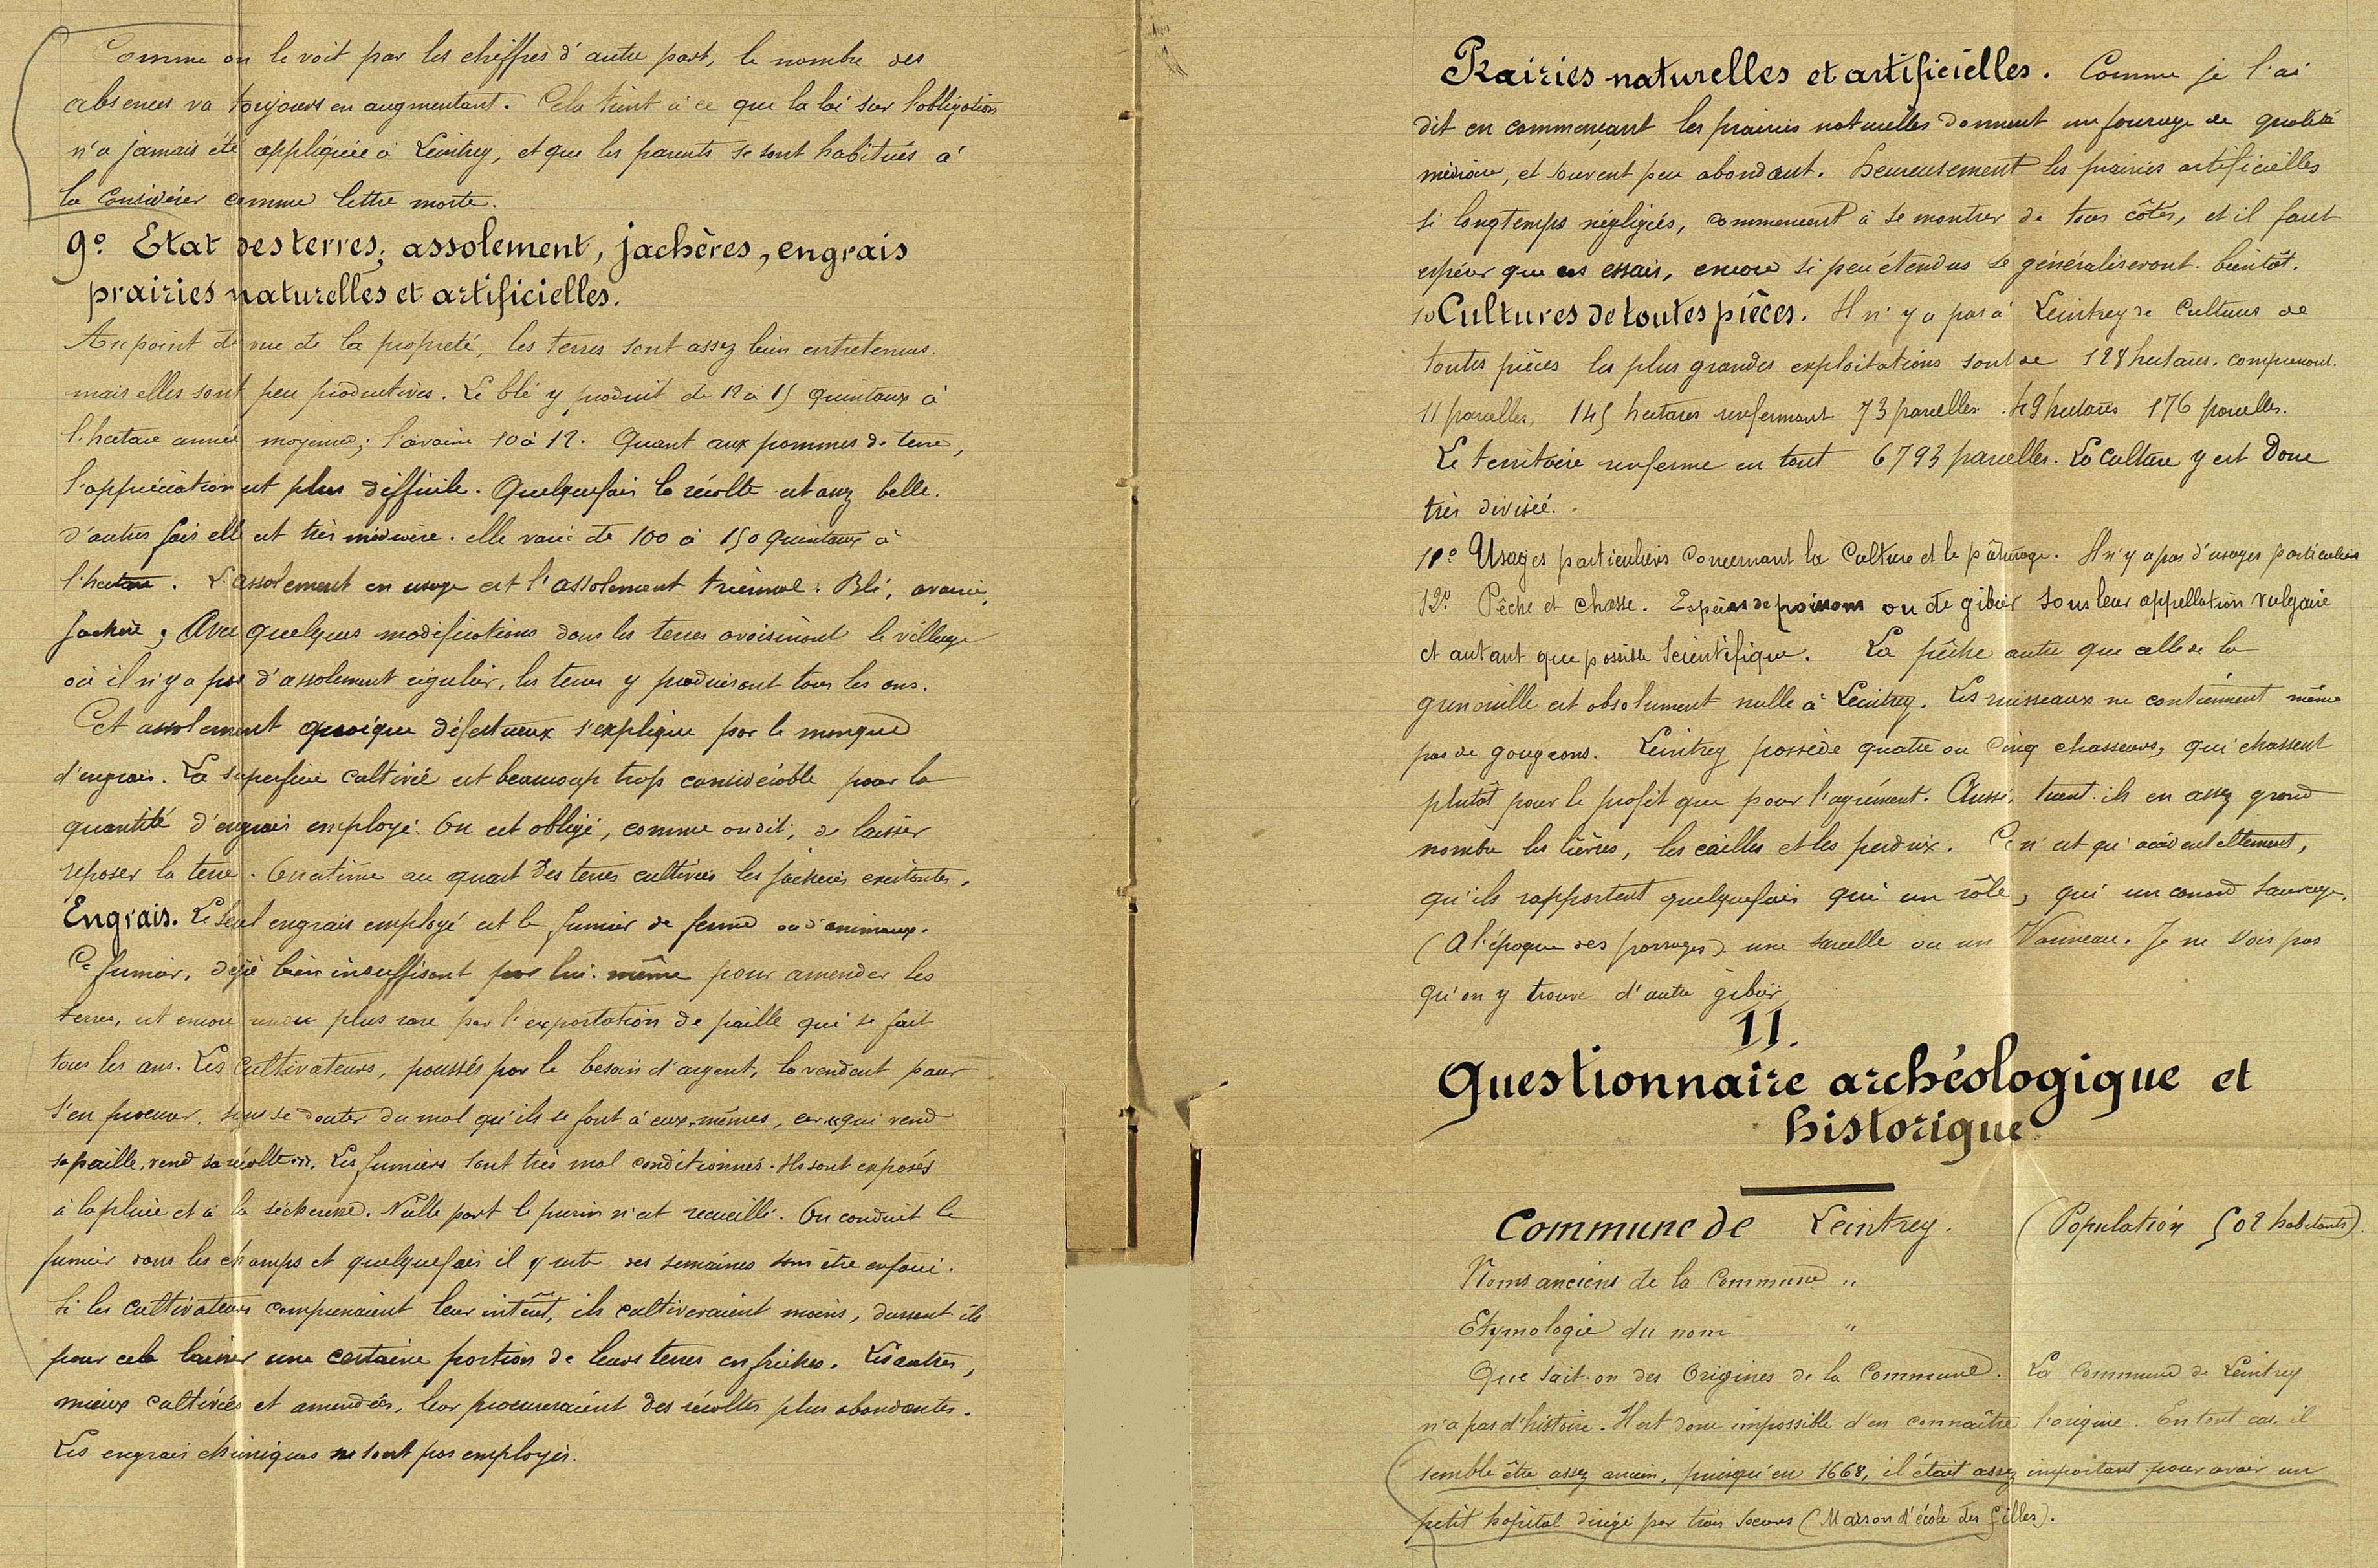 Comme on le voit par les chiffres d'autre part, le nombre des
absences va toujours en augmentant. Cela tient à ce que la loi sur l'obligation
n'a jamais été appliquée à Leintrey, et que les parents se sont habitués à
la considérer comme lettre morte.
9º Etat des terres; assolement, jachères, engrais
prairies naturelles et artificielles.
Au point de vue de la propreté, les terres sont assez bien entretenues.
mais elles sont peu productives. Le blé y produit de 12 à 15 quintaux à
l'hectare année moyenne; l'avoine 10 à 12. Quant aux pommes de terre,
l'appréciation est plus difficile. Quelquefois la récolte est assez belle.
d'autres fois elle est très médiocre. elle varie de 100 à 150 quintaux à
l'hectare. L'assolement en usage est l'assolement triennal: Blé, avoine,
Jachère; Avec quelques modifications dans les terres avoisinant le village
où il n'y a pas d'assolement régulier, les terres y produisant tous les ans.
Cet assolement quoique défectueux s'explique par le manque
d'engrais. La superficie cultivée est beaucoup trop considérable pour la
quantité d'engrais employé. On est obligé, comme on dit, de laisser
reposer la terre. On estime au quart des terres cultivées les jachères existantes.
Engrais. Le seul engrais employé est le fumier de ferme ou d'animaux.
Ce fumier, déjà bien insuffisant par lui-même pour amender les
terres, est encore rendu plus rare par l'exportation de paille qui se fait
tous les ans. Les cultivateurs, poussés par le besoin d'argent, la vendent pour
s'en procurer, sans se douter du mal qu'ils se font à eux-mêmes, car qui vend
sa paille, vend sa récolte. Les fumiers sont très mal conditionnés. Ils sont exposés
à la pluie et à la sécheresse. Nulle part le purin n'est recueilli. On conduit le
fumier dans les champs et quelquefois il y reste des semaines sans être enfoui.
Si les cultivateurs comprenaient leur intérêt, ils cultiveraient moins, dussent ils
pour cela laisser une certaine portion de leurs terres en friches. Les autres,
mieux cultivées et amendées, leur procureraient des récoltes plus abondantes.
Les engrais chimiques ne sont pas employés.
Prairies naturelles et artificielles. Comme je l'ai
dit en commençant les prairies naturelles donnent un fourrage de qualité
médiocre, et souvent peu abondant. Heureusement les prairies artificielles
si longtemps négligées, commencent à se montrer de tous côtés, et il faut
espérer que ces essais, encore si peu étendus se généraliseront bientôt.
10 Cultures de toutes pièces. Il n'y a pas à Leintrey de Cultures de
toutes pièces les plus grandes exploitations sont de 128 hectares, comprenant
11 parcelles, 145 hectares renfermant 73 parcelles. 49 hectares 176 parcelles.
Le territoire renferme en tout 6793 parcelles. La culture y est Donc
très divisée.
11º Usages particuliers concernant la Culture et le pâturage. Il n'y a pas d'usages particuliers
12º Pêche et chasse. Espèces de poissons ou de gibier sous leur appellation vulgaire
et autant que possible scientifique. La pêche autre que celle de la
grenouille est absolument nulle à Leintrey. Les ruisseaux ne contiennent même
pas de gougeons. Leintrey possède quatre ou cinq chasseurs, qui chassent
plutôt pour le profit que pour l'agrément. Aussi, tuent-ils en assez grand
nombre les lièvres, les cailles et les perdrix. Ce n'est qu'accidentellement,
qu'ils rapportent quelquefois qui un râle, qui un canard sauvage,
(A l'époque des passages) une sarcelle ou un Vanneau. Je ne vois pas
qu'on y trouve d'autre gibier
11.
Questionnaire archéologique et
historique
Commune de Leintrey. (Population 502 habitants).
Noms anciens de la Commune "
Etymologie du nom "
Que sait-on des Origines de la Commune. La Commune de Leintrey
n'a pas d'histoire. Il est donc impossible d'en connaître l'origine. En tout cas, il
semble être assez ancien, puisqu'en 1668, il était assez important pour avoir un
petit hopital dirigé par trois Soeurs (Maison d'école des filles).